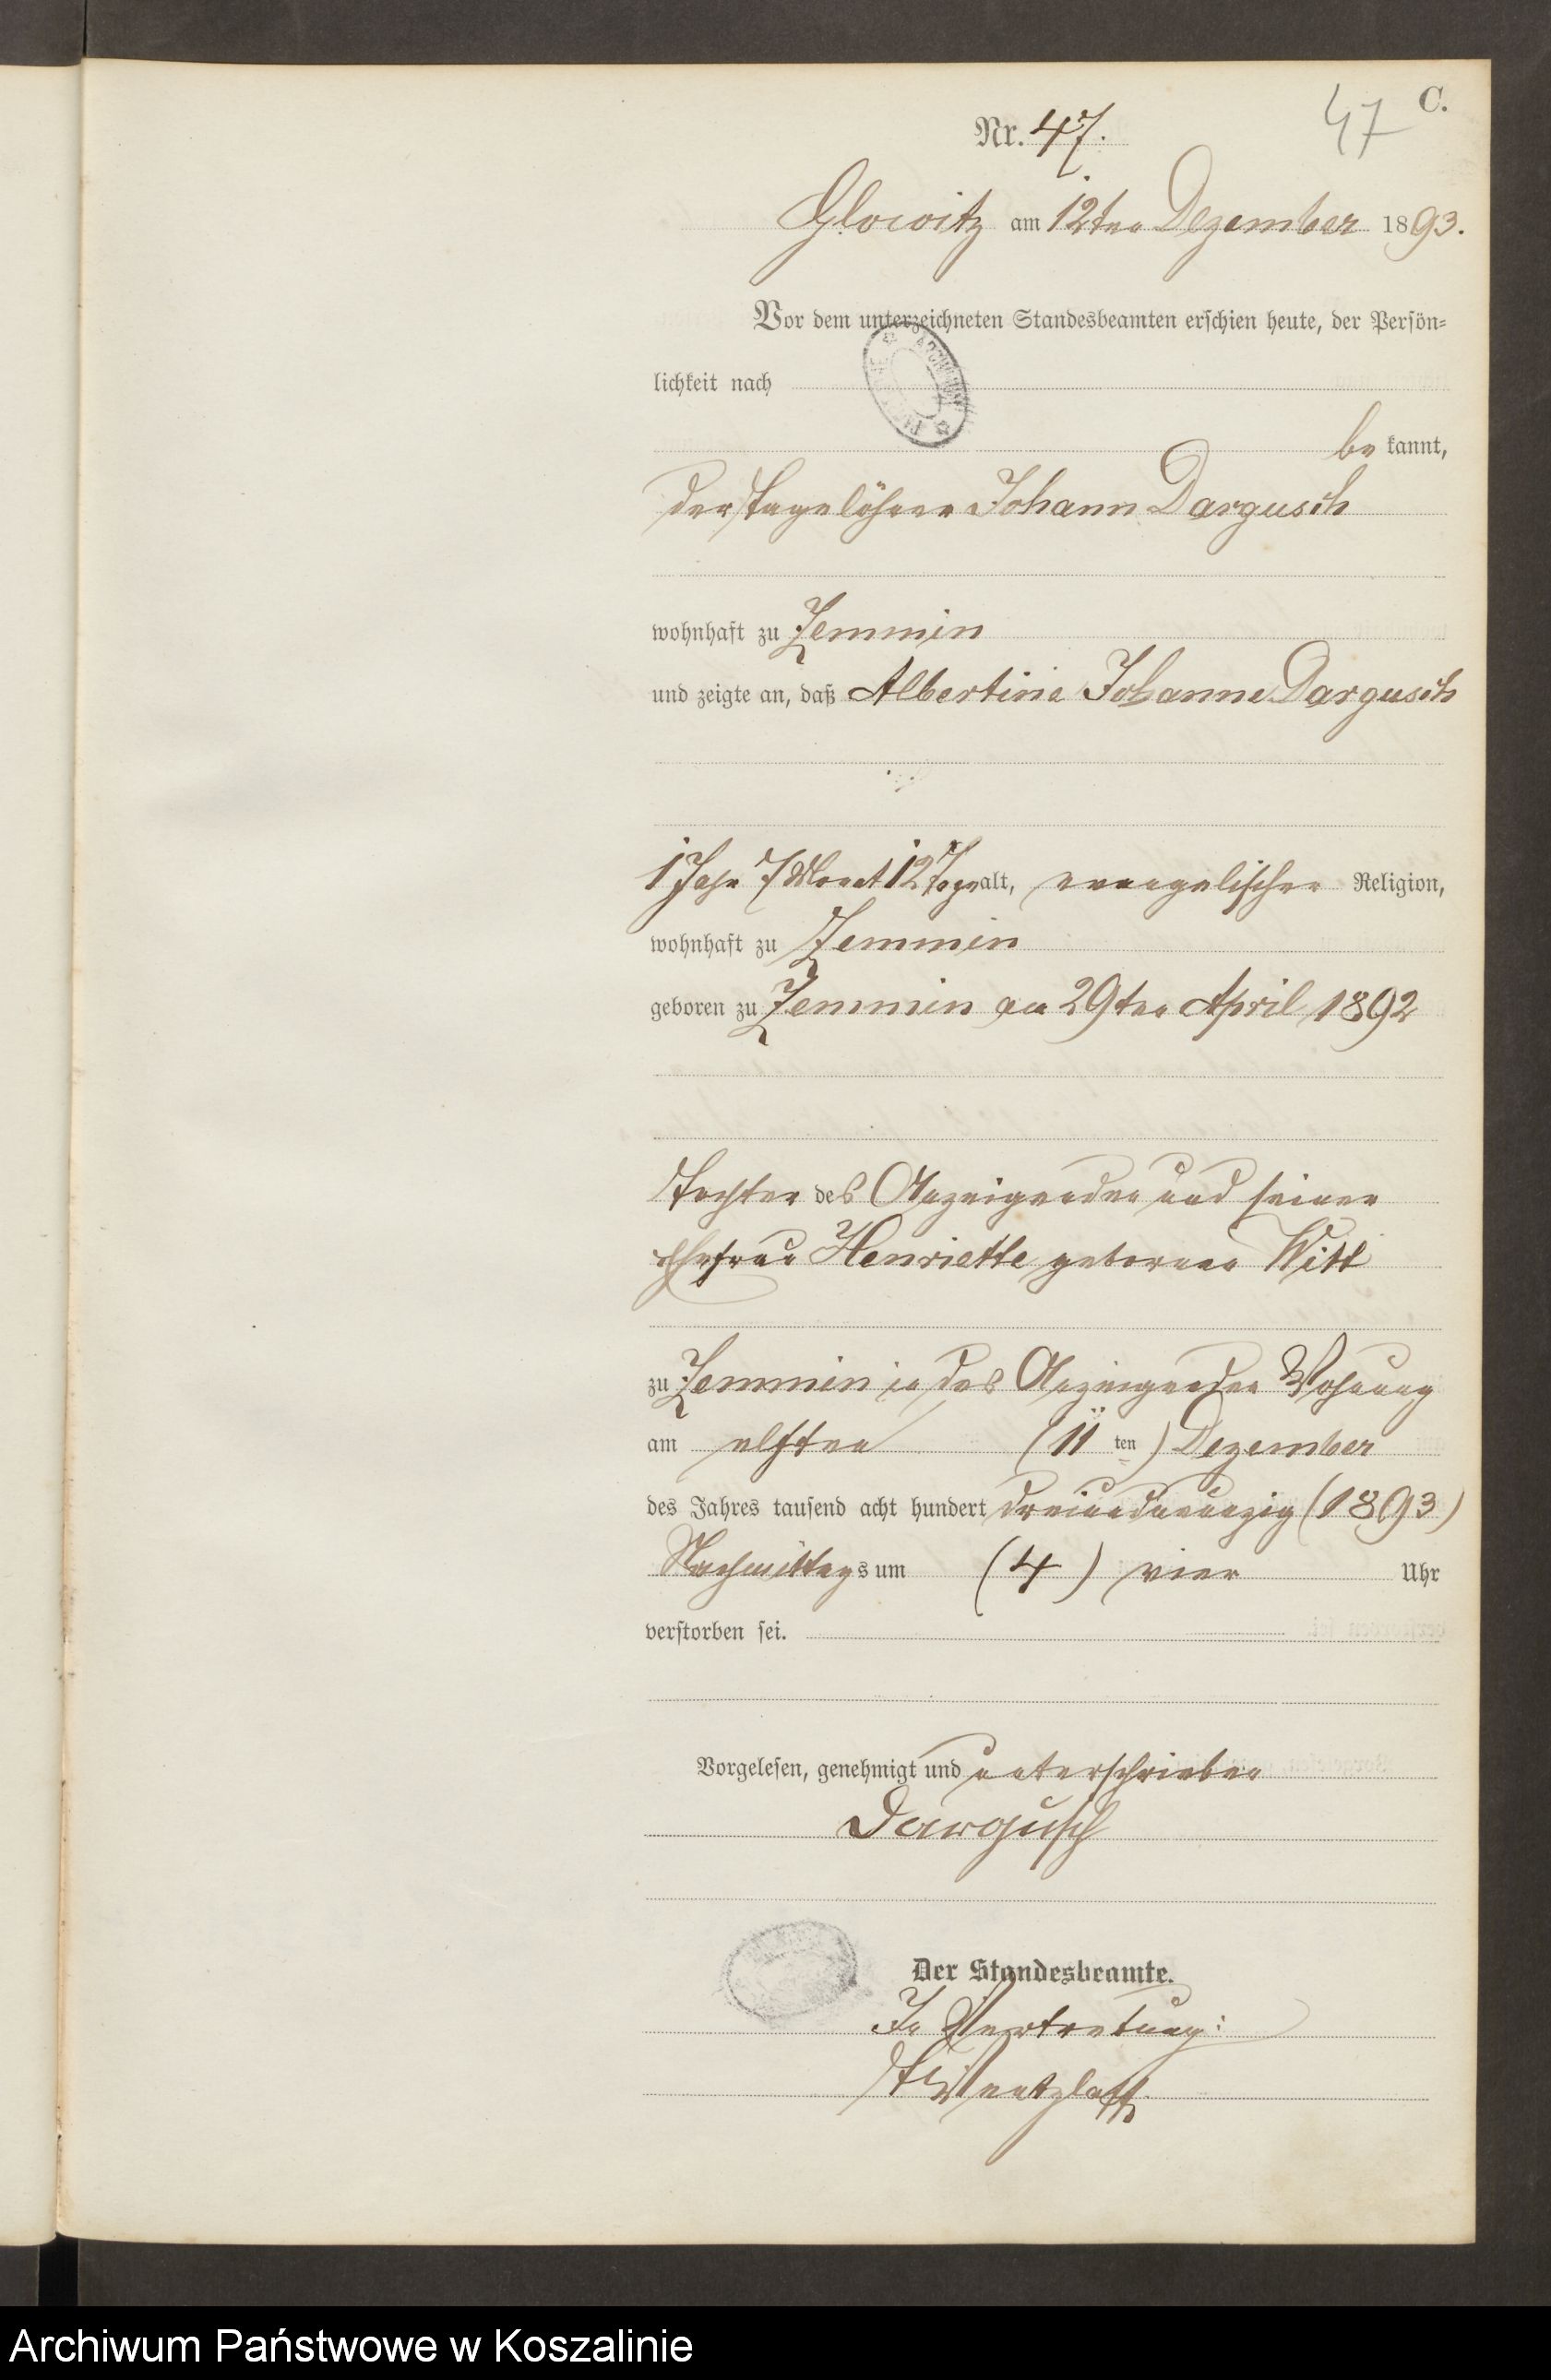 C.
47
Nr. 47.
Glowitz am 12ten Dezember 1893.
Vor dem unterzeichneten Standesbeamten erschien heute, der Persön=
lichkeit nach
be kannt,
der Tagelöhner Johann Dargusch
wohnhaft zu Zemmin
und zeigte an, daß Albertine Johanne Dargusch
1 Jahr 7 Monat 12 Tage alt, evangelischer Religion,
wohnhaft zu Zemmin
geboren zu Zemmin am 29ten April 1892
Tochter des Anzeigenden und seiner
Ehefrau Henriette geborenen Witt
zu Zemmin in des Anzeigenden Wohnung
am elften (11 ten) Dezember
des Jahres tausend acht hundert dreiundneunzig (1893)
Nachmittags um (4) vier Uhr
verstorben sei.
Vorgelesen, genehmigt und unterschrieben
Dargusch
Der Standesbeamte.
In Vertretung:
Archiwum Państwowe w Koszalinie